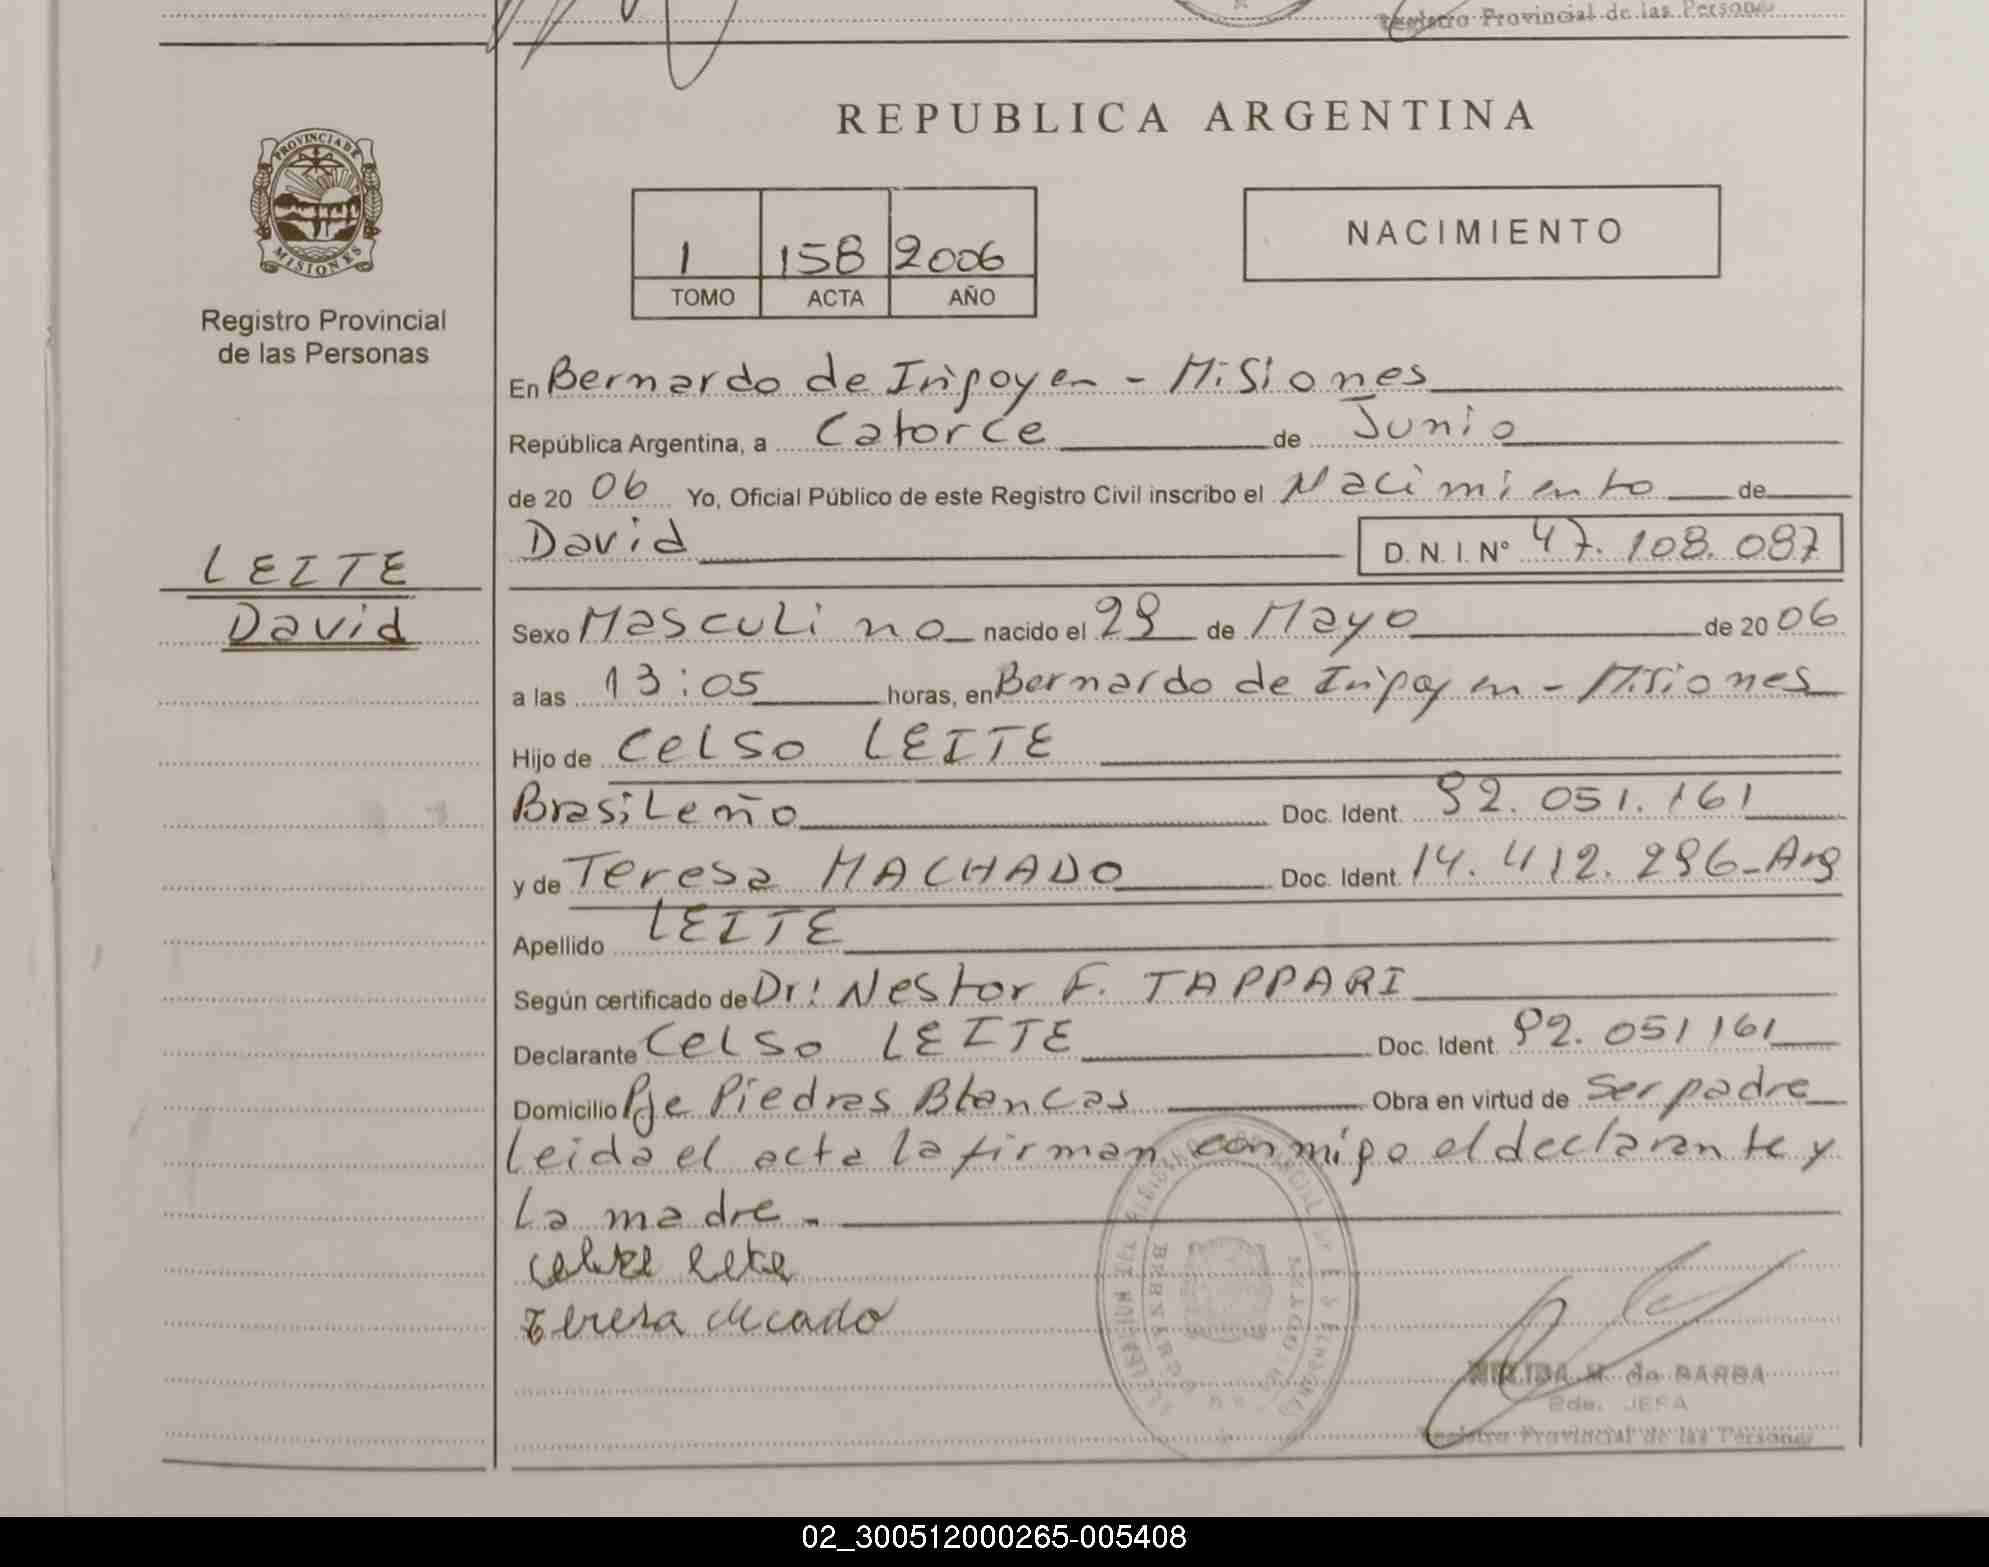 Registro Provincial de las Personas
REPUBLICA ARGENTINA
PROVINCIA DE
MISIONES
Registro Provincial
de las Personas
1 158 2006
TOMO ACTA AÑO
NACIMIENTO
En Bernardo de Irigoyen - Misiones
República Argentina, a Catorce de Junio
de 20 06 Yo, Oficial Público de este Registro Civil inscribo el Nacimiento de
David D. N. I. Nº 47. 108. 087
LEITE
David
Sexo Masculino nacido el 29 de Mayo de 20 06
a las 13:05 horas, en Bernardo de Irigoyen - Misiones
Hijo de Celso LEITE
Brasileño Doc. Ident. 92. 051. 161
y de Teresa MACHADO Doc. Ident. 14. 412. 296 - Arg
Apellido LEITE
Según certificado de Dr: Nestor F. TAPPARI
Declarante Celso LEITE Doc. Ident. 92. 051 161
Domicilio Pje Piedras Blancas Obra en virtud de ser padre
Leida el acta la firman conmigo el declarante y
La madre. -
Teresa
de BARRA
2da. JEFA
Registro Provincial de las Personas
02_300512000265-005408